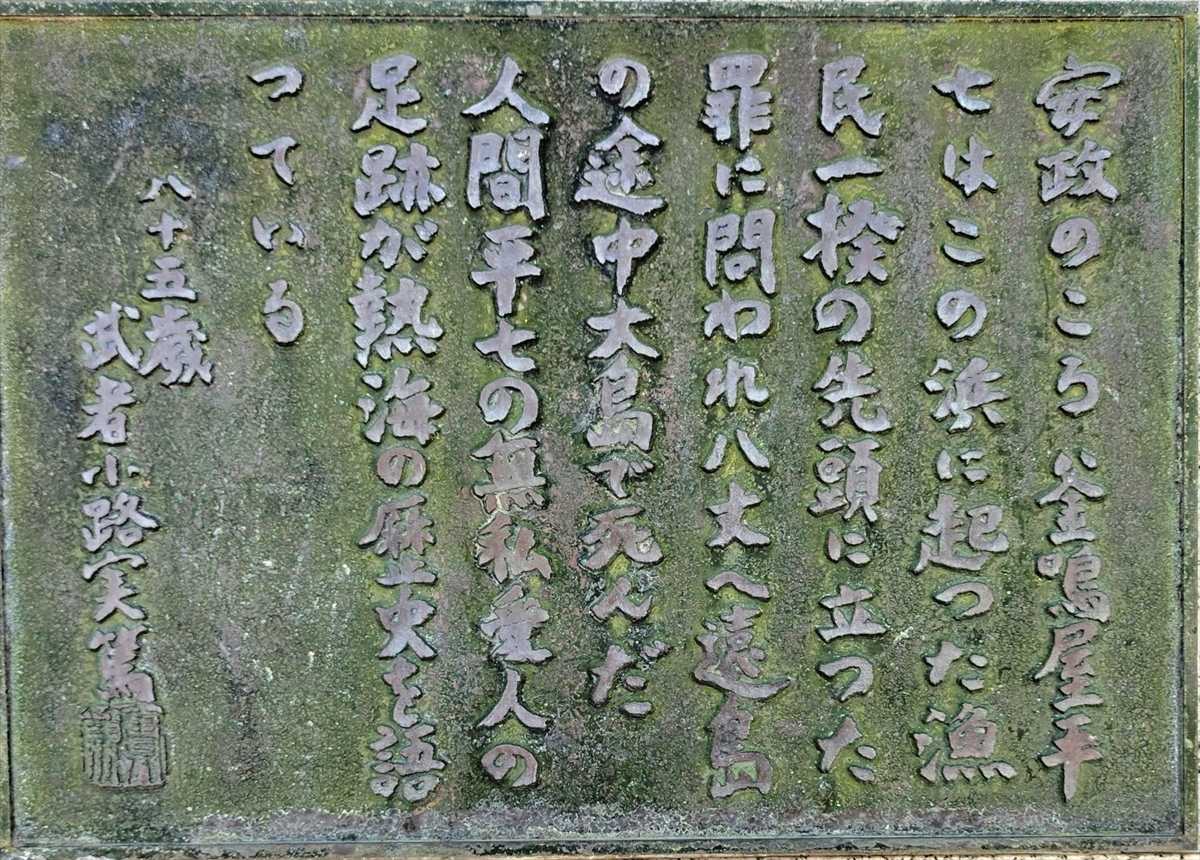 安政のころ釜鳴屋平
七はこの浜に起った漁
民一揆の先頭に立った
罪に問われ八丈へ遠島
の途中大島で死んだ
人間平七の無私愛人の
足跡が熱海の歴史を語
っている
八十五歳
武者小路実篤